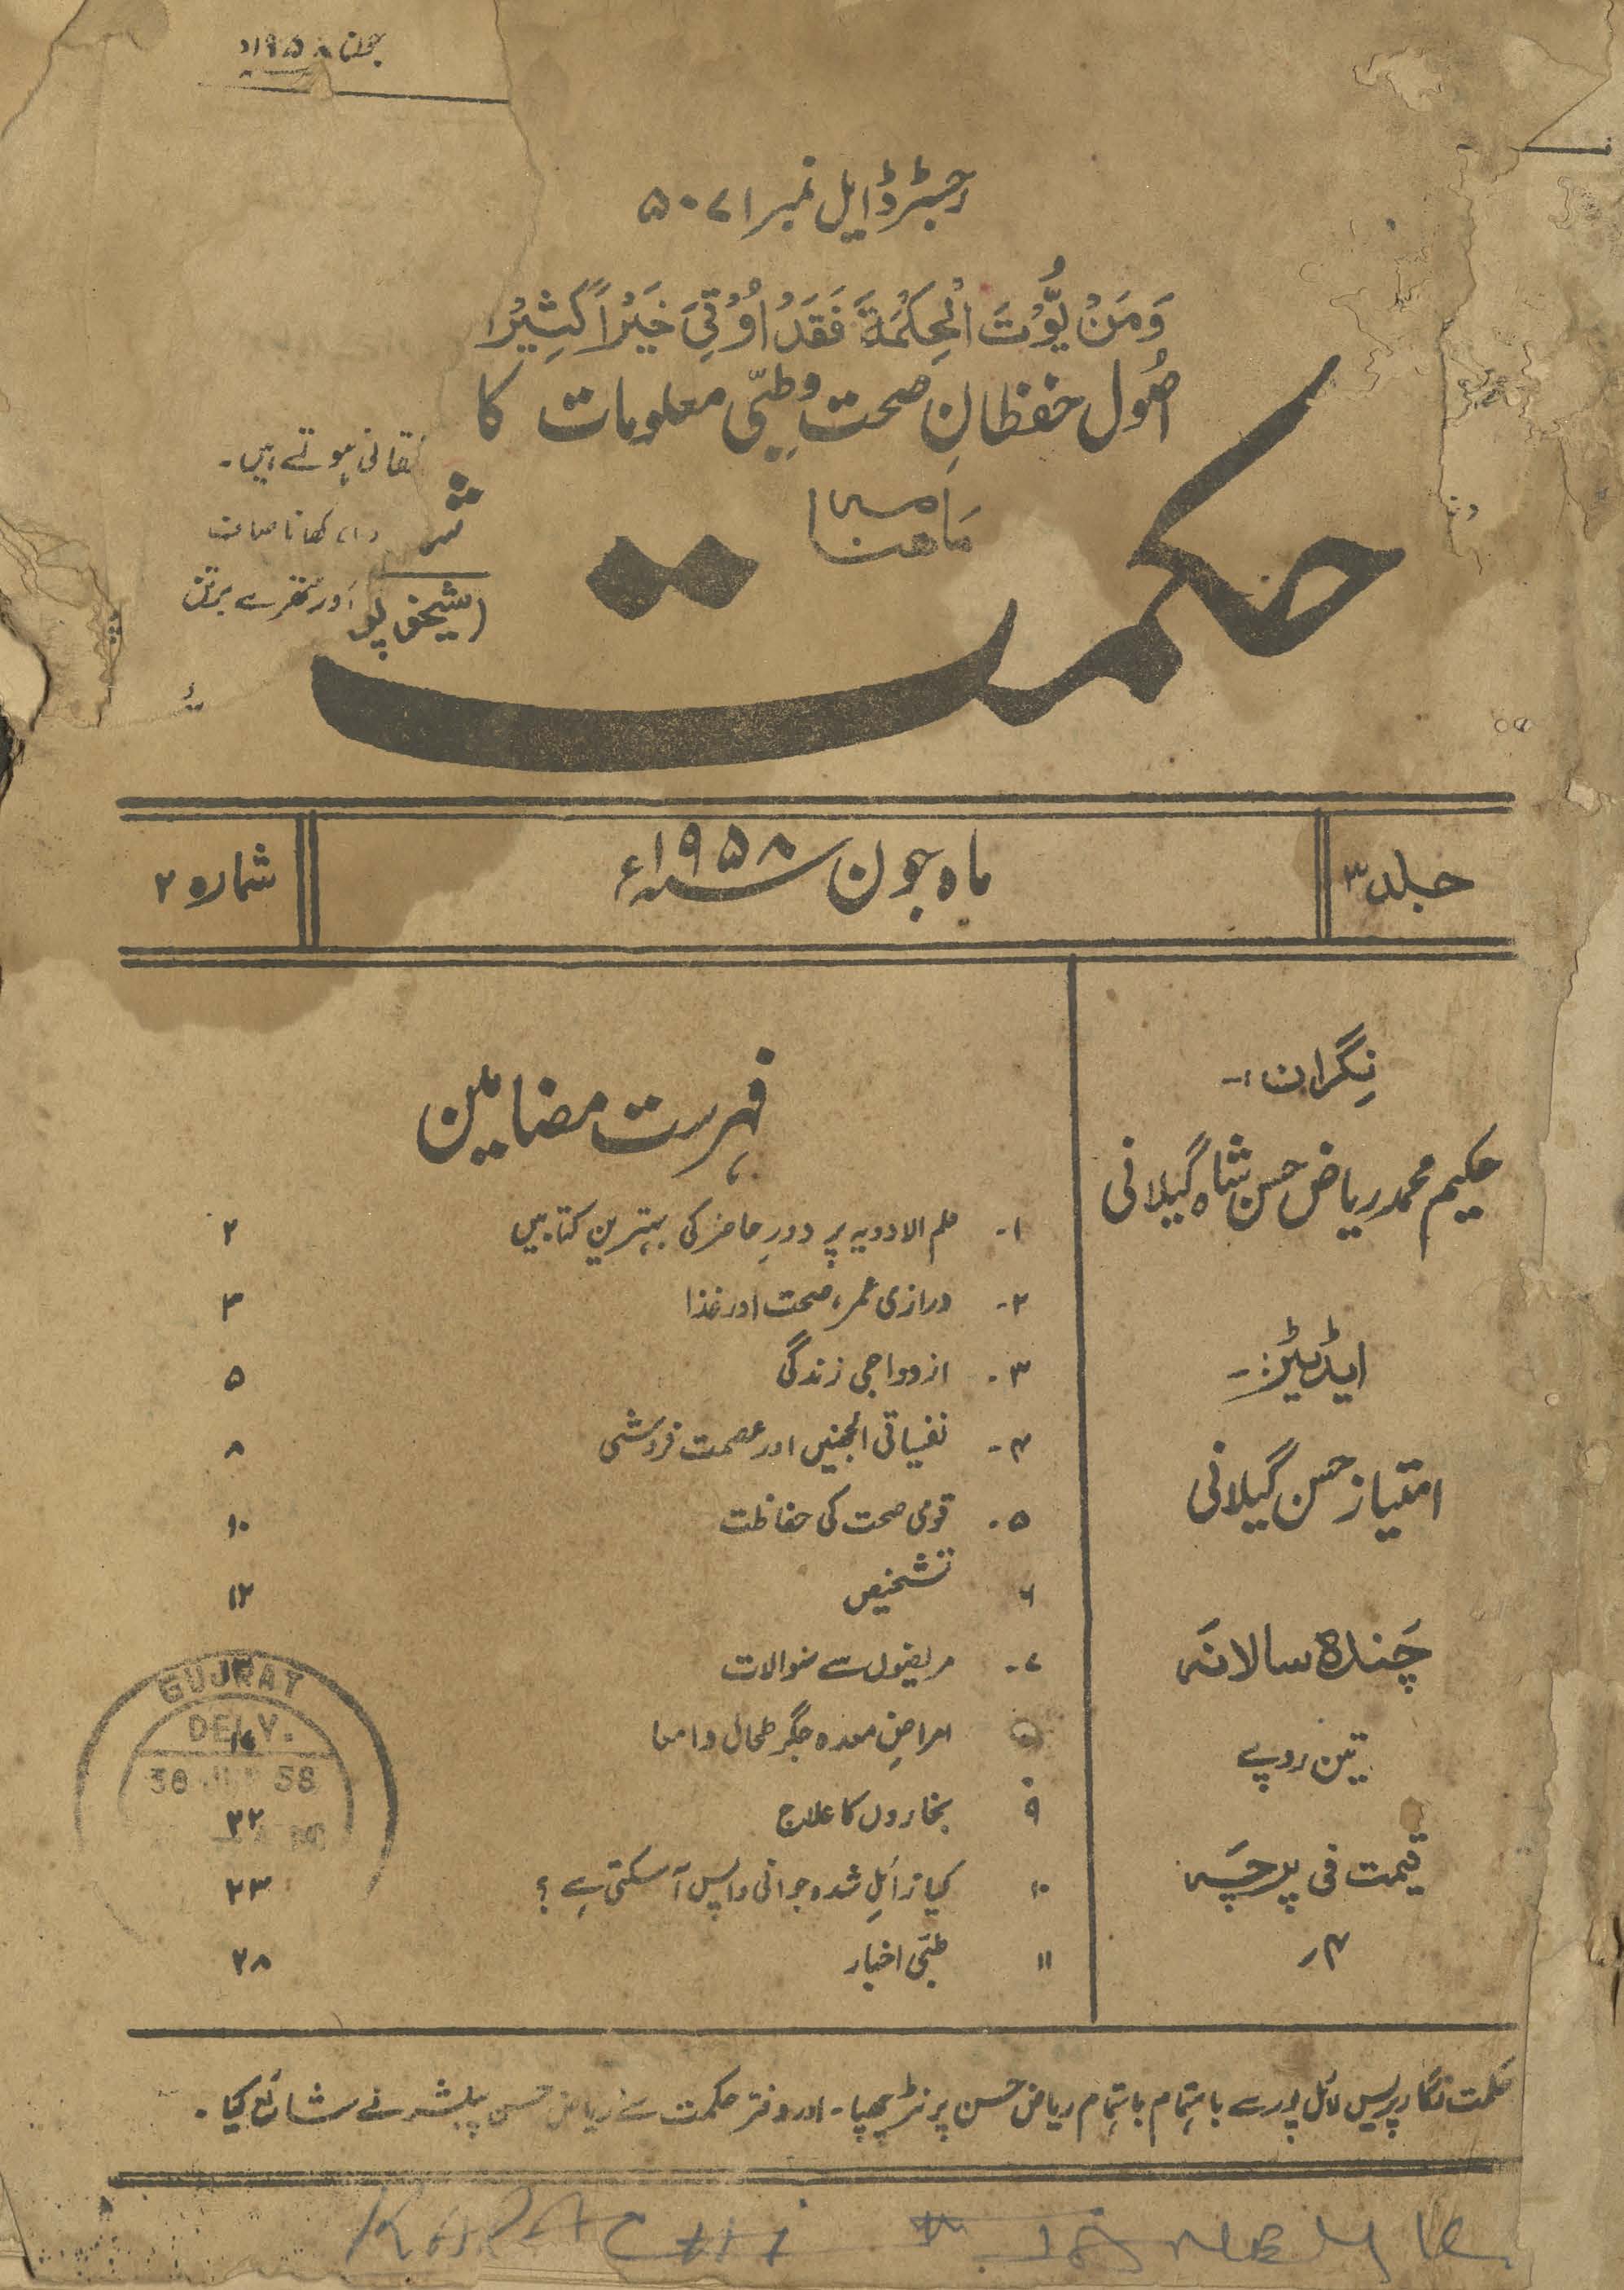 جون ۱۹۵۸ء
رجسٹرڈ ایل نمبر ۵۰۷۱
وَمَنْ يُّؤْتَ الْحِكْمَةَ فَقَدْ اُوْتِیَ خَيْرًا كَثِيْرًا
اصُول حفظانِ صحت و طبّی معلومات کا
ماھنامہ
حکمت
لقمانی ہوتے ہیں۔
کھانا صاف
اور ستھرے برتن
جلد ۳
ماہ جون ۱۹۵۸ء
شمارہ ۲
نِگران :-
حکیم محمد ریاض حسن شاہ گیلانی
ایڈیٹر :-
امتیاز حسن گیلانی
چَندہ سالانَہ
تین روپے
قیمت فی پرچَہ
۴؍
فہرست مضامین
۱- علم الادویہ پر دورِ حاضر کی بہترین کتابیں ۲
۲- درازی عمر، صحت اور غذا ۳
۳- ازدواجی زندگی ۵
۴- نفسیاتی الجھنیں اور عصمت فروشی ۸
۵- قومی صحت کی حفاظت ۱۰
۶ تشخیص ۱۲
۷- مریضوں سے سوالات
امراضِ معدہ جگر طحال و امعا
۹ بخاروں کا علاج ۲۲
۱۰ کیا زائل شدہ جوانی واپس آ سکتی ہے ؟ ۲۳
۱۱ طبّی اخبار ۲۸
GUJRAT
DELY.
پریس لائل پور سے باہتمام باہتمام ریاض حسن پرنٹر چھپا۔ اور دفتر حکمت سے ریاض حسن پبلشر نے شائع کیا۔
KARACHI